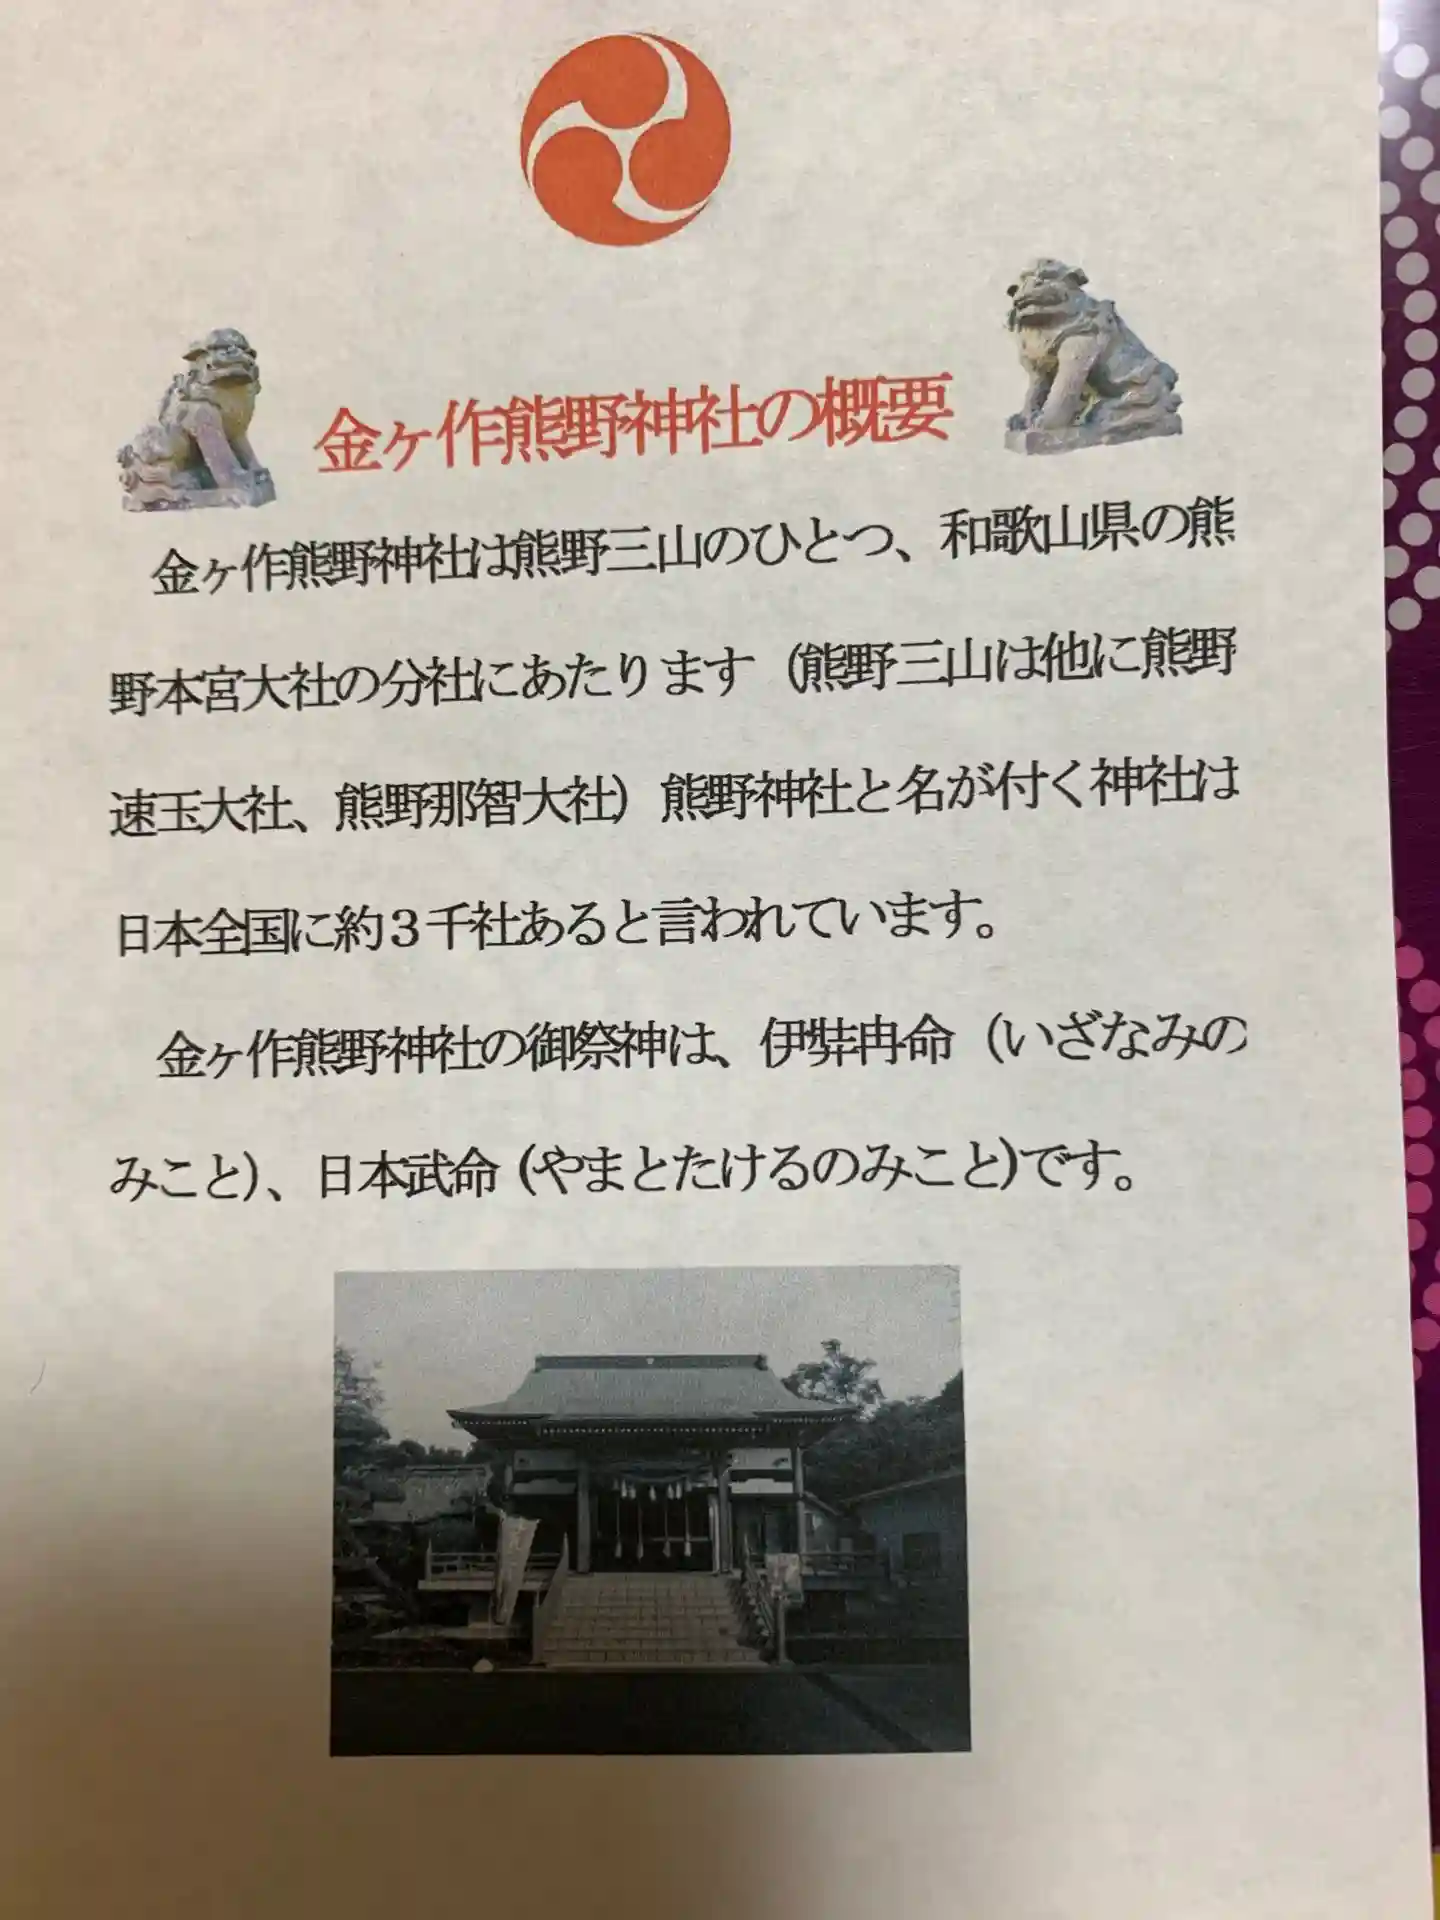 金ヶ作熊野神社の概要
金ヶ作熊野神社は熊野三山のひとつ、和歌山県の熊
野本宮大社の分社にあたります（熊野三山は他に熊野
速玉大社、熊野那智大社）熊野神社と名が付く神社は
日本全国に約３千社あると言われています。
金ヶ作熊野神社の御祭神は、伊弉冉命（いざなみの
みこと）、日本武命（やまとたけるのみこと）です。